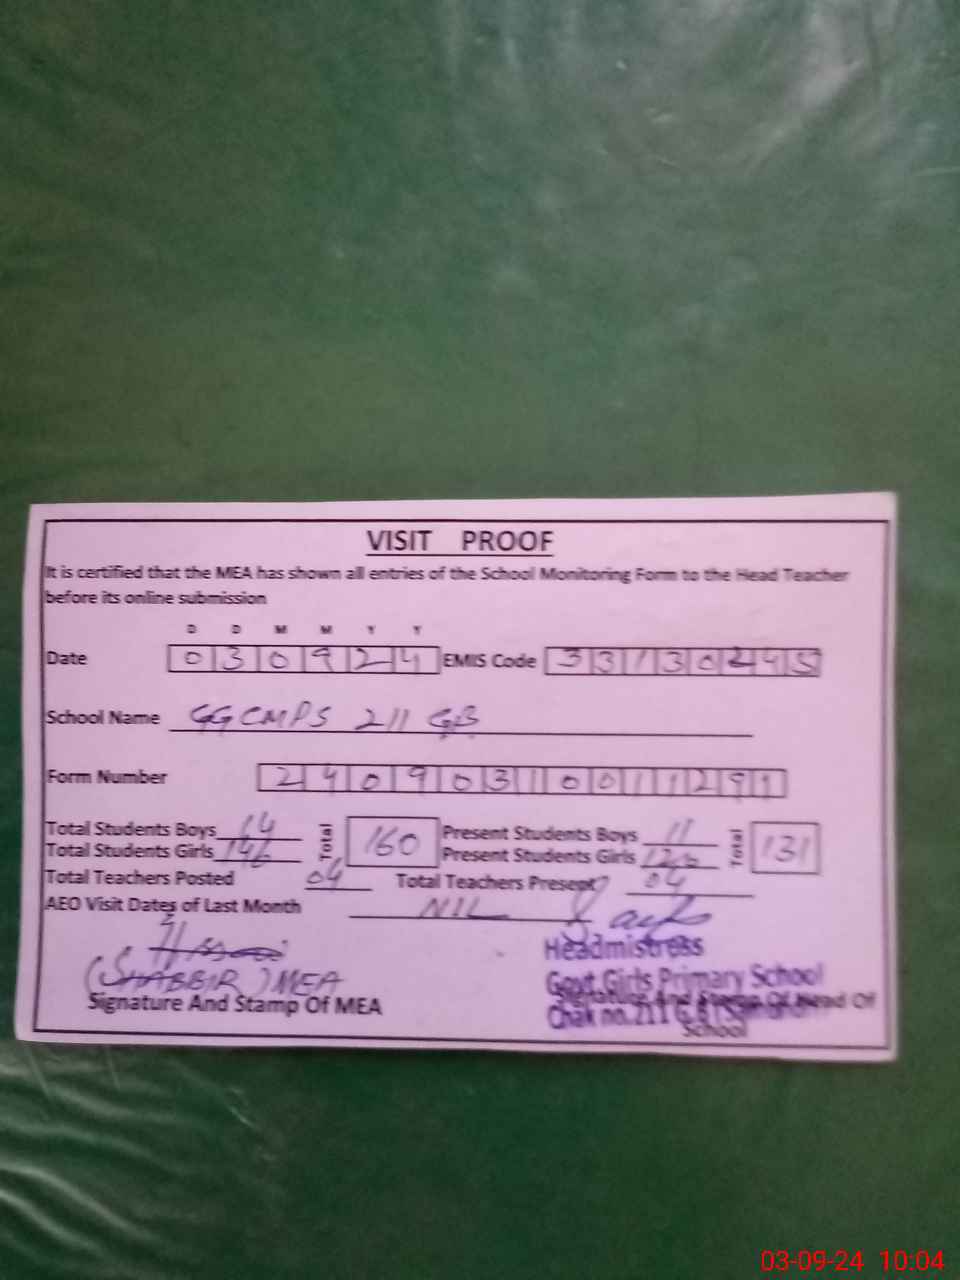 VISIT PROOF
It is certified that the MEA has shown all entries of the School Monitoring Form to the Head Teacher
before its online submission
D D M M Y Y
Date 030924 EMIS Code 33130245
School Name GGCMPS 211 GB
Form Number 24090310011291
Total Students Boys 14 Total 160 Present Students Boys 11 Total 131
Total Students Girls 146 Present Students Girls 120
Total Teachers Posted 04 Total Teachers Present 04
AEO Visit Dates of Last Month NIL
Headmistress
(SHABBIR) MEA Govt. Girls Primary School
Signature And Stamp Of MEA Signature And Stamp Of Head Of
Chak no.211 G.B
School
03-09-24 10:04